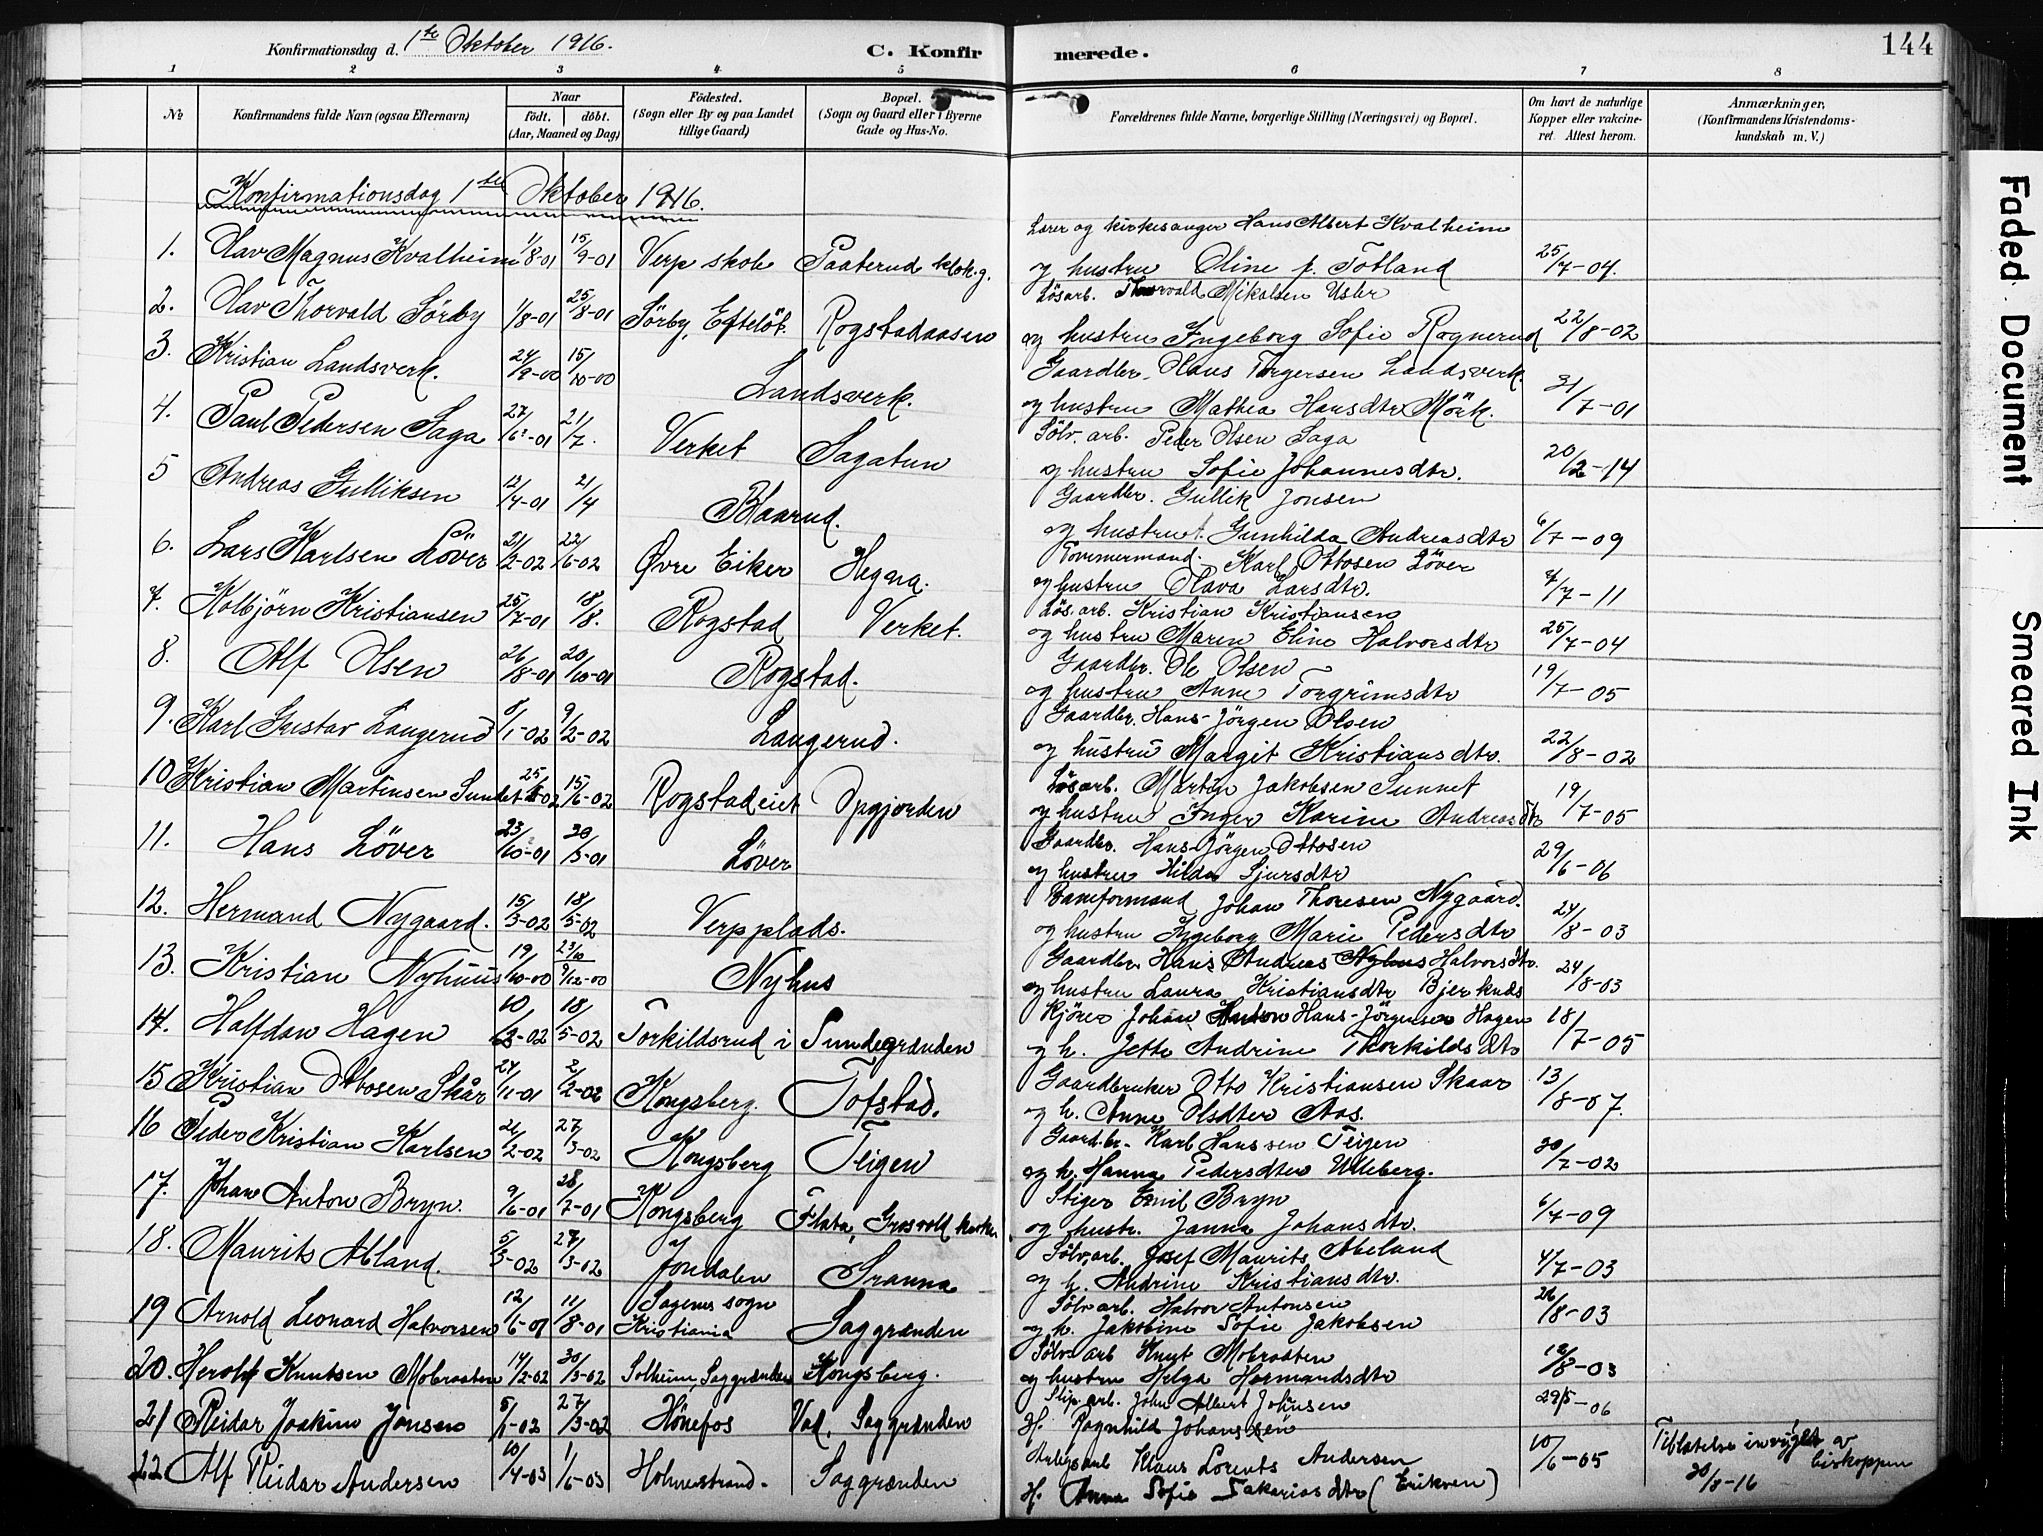 Konfirmationsdag d. 1ste Oktober 1916.
C. Konfirmerede.
144
1 2 3 4 5 6 7 8
No
Konfirmandens fulde Navn (ogsaa Efternavn)
Naar
födt. döbt.
(Aar, Maaned og Dag)
Födested.
(Sogn eller By og paa Landet
tillige Gaard)
Bopæl.
(Sogn og Gaard eller i Byerne
Gade og Hus-No.
Forældrenes fulde Navne, borgerlige Stilling (Næringsvei) og Bopæl.
Om havt de naturlige
Kopper eller vakcine-
ret. Attest herom.
Anmærkninger,
(Konfirmandens Kristendoms-
kundskab m. V.)
Konfirmationsdag 1ste Oktober 1916.
Lærer og kirkesanger Hans Albert Kvalheim
1. Olav Magnus Kvalheim 1/8-01 15/9-01 Verp skole Paaterud klok.g. og hustru Oline f. Totland 25/7-04.
Lösarb. Thorvald Mikalsen Usler
2. Olav Thorvald Sörby 1/8-01 25/8-01 Sörby, Efteløt. Rogstadaasen og hustru Ingeborg Sofie Rognerud 22/8-02
Gaardbr. Hans Torgersen Landsverk.
3. Kristian Landsverk. 24/9-00 15/10-00 Landsverk. og hustru Mathea Hansdtr Mörk. 31/7-01
Sölv. arb. Peder Olsen Saga
4. Paul Pedersen Saga 27/6-01 21/7. Verket Sagatun og hustru Sofie Johannesdtr. 20/2-14
Gaardbr. Gullik Jonsen
5 Andreas Gulliksen 12/4-01 21/4 Blaarud. og hustru Gunhilda Andreasdtr 6/7-09
Tömmermand. Karl Ottosen Löver
6. Lars Karlsen Löver 21/2-02 22/6-02 Øvre Eiker Hegna. og hustru Olava Larsdtr. 4/7-11
Lös. arb. Kristian Kristiansen
7. Kolbjörn Kristiansen 25/7-01 18/8. Rogstad Verket. og hustru Maren Eline Halvorsdtr 25/7-04
Gaardbr. Ole Olsen
8. Alf Olsen 26/8-01 20/10-01 Rogstad. og hustru Anne Torgrimsdtr 19/7-05
Gaardbr. Hans-Jörgen Olsen
9. Karl Gustav Langerud 8/1-02 9/2-02 Langerud. og hustru Margit Kristiansdtr. 22/8-02
Lösarb. Martin Jakobsen Sunnet
10 Kristian Martinsen Sundet 25/-02 15/6-02 Rogstadeiet Opgjorden og hustru Inger Karine Andreasdtr 19/7-05
Gaardbr. Hans-Jörgen Ottosen
11. Hans Løver 23/10-01 Løver og hustru Hilda Sjursdtr 29/6-06
Baneformand Johan Thoresen Nygaard.
12. Hermand Nygaard. 15/3-02 18/5-02 Verpplads. og hustru Ingeborg Marie Pedersdtr 24/8-03
Gaardbr. Hans Andreas Nyhus Halvorsdtr.
13. Kristian Nyhuus 19/10-00 23/10 9/12-00 Nyhus og hustru Laura Kristiansdtr Bjerknæs 24/8-03
Kjörer Johan Hans-Jörgensen Hagen
14. Halfdan Hagen 10/-02 18/5-02 Torkildsrud i Sundegrænden og h. Jette Andrine Thorkildsdtr 18/7-05
Gaardbruker Otto Kristiansen Skaar
15 Kristian Ottosen Skår 24/11-01 2/2-02 Kongsberg. Tofstad. og h. Anne Olsdtr Aas. 13/8-07.
Gaardbr. Karl Hanssen Teigen
16 Peder Kristian Karlsen 21/2-02 27/3-02 Kongsberg Teigen og h. Hanna Pedersdtr Ulleberg. 30/7-02
Stiger Emil Bryn
17. Johan Anton Bryn. 9/6-01 28/7-01 Kongsberg Flata, Grosvold og hustr. Janna Johansdtr. 6/7-09
Sölv.arb. Josef Maurits Abeland
18. Maurits Abland. 5/3-02 27/3-02 Jondalen Sranna og h. Andrine Kristiansdtr. 4/7-03
Sölvarb. Halvor Antonsen
19 Arnold Leonard Halvorsen 12/6-01 11/8-01 Sagenes sogn Kristiania Saggrænden og h. Jakobine Sofie Jakobsen 26/8-03
Sölvarb Knut Mobraaten
20. Herolf Knutsen Mobraaten 14/2-02 30/3-02 Solheim, Saggrænden Kongsberg. og hustru Helga Hermandsdtr 18/8-03
Slip.arb. John Albert Johnsen
21 Reidar Joakim Jonsen 5/1-02 27/3-02 Hönefos Vad, Saggrænden H. Ragnhild Johanssen 29/5-06
Klaus Lorents Andersen
22 Alf Reidar Andersen 10/4-03 1/6-03 Holmestrand. Saggrænden H. Anna Sofie Sakariasdtr (Eriksen) 10/6-05 Tilladelse invilget av biskoppen 30/8-16
Faded Document
Smeared Ink